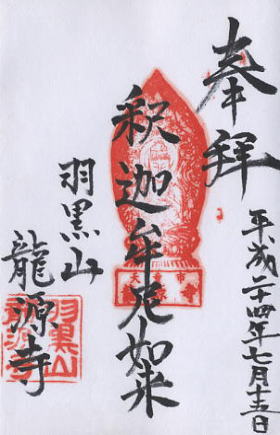 奉拝
平成二十四年七月 日
釈迦牟尼如来
羽黒山
龍源寺
羽黒山